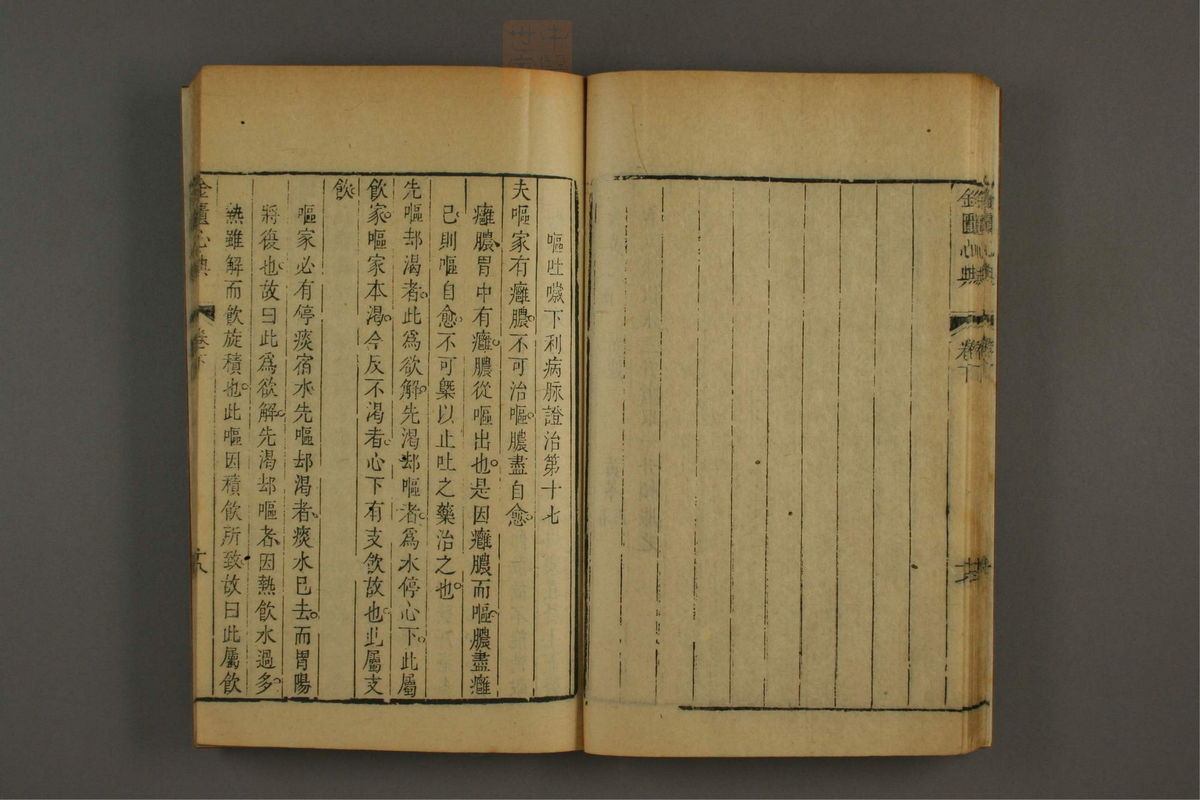 金匱心典
卷下
嘔吐噦下利病脉證治第十七
夫嘔家有癰膿。不可治嘔。膿盡自愈。
癰膿胃中有癰。膿從嘔出也。是因癰膿而嘔。膿盡癰
已。則嘔自愈。不可槩以止吐之藥治之也。
先嘔却渴者。此爲欲解。先渴却嘔者。爲水停心下。此屬
飲家。嘔家本渴。今反不渴者。心下有支飲故也。此屬支
飲。
嘔家必有停痰宿水。先嘔却渴者。痰水已去。而胃陽
將復也。故曰此爲欲解。先渴却嘔者。因熱飲水過多。
熱雖解而飲旋積也。此嘔因積飲所致。故曰此屬飲
金匱心典
卷下
十八